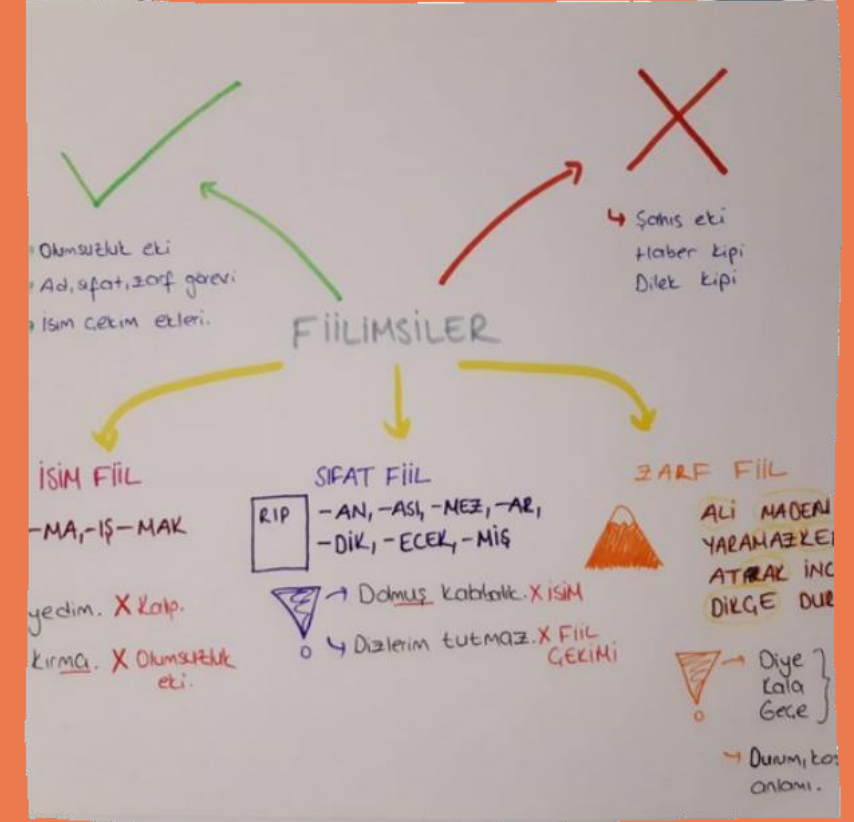 Olumsuzluk eki
Ad, sıfat, zarf görevi
İsim çekim ekleri.
↳ Şahıs eki
Haber kipi
Dilek kipi
FİİLİMSİLER
İSİM FİİL
-MA,-IŞ-MAK
yedim. X Kalp.
kırma. X Olumsuzluk
eki.
SIFAT FİİL
RIP
-AN, -ASI, -MEZ, -AR,
-DİK, -ECEK, -MİŞ
→ Dolmuş kalabalık. X İSİM
↳ Dizlerim tutmaz. X FİİL
ÇEKİMİ
ZARF FİİL
ALİ MADEN
YARAMAZKE
ATARAK İNC
DİKÇE DUR
→ Diye
Kala
Geçe
→ Durum, koş
anlamı.